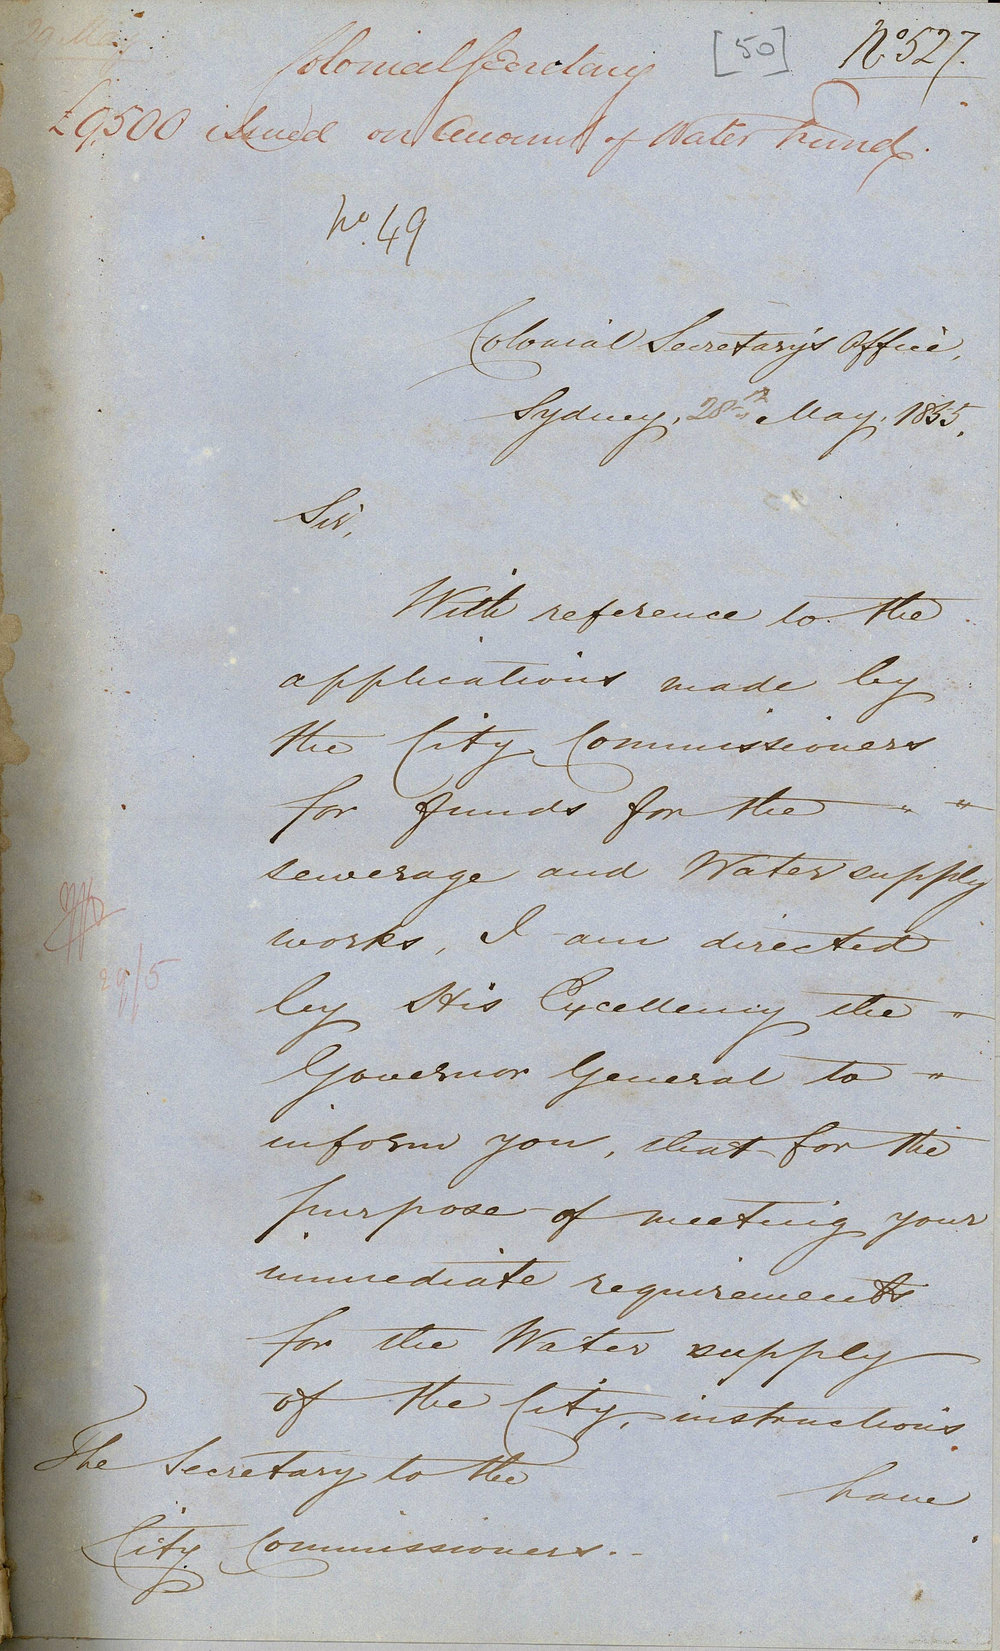 29 May
[50]
No 527.
Colonial Secretary
£9,500 issued on Account of Water Fund.
No. 49
Colonial Secretary's Office,
Sydney, 28th May, 1855.
Sir,
With reference to the
applications made by
the City Commissioners
for funds for the " "
sewerage and Water supply
works, I am directed
by His Excellency the "
Governor General to "
inform you, that for the
purpose of meeting your
immediate requirements
for the Water supply
of the City, instructions
have
29/5
The Secretary to the
City Commissioners.